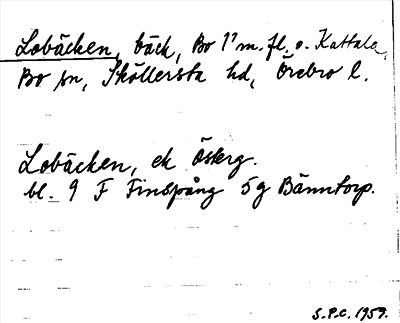 Lobäcken, bäck, Bo 1⁷ m. fl. o. Kattala,
Bo sn, Sköllersta hd, Örebro l.
Lobäcken, ek Österg.
bl. 9 F Finspång 5g Bänntorp.
S.P.C. 1959.